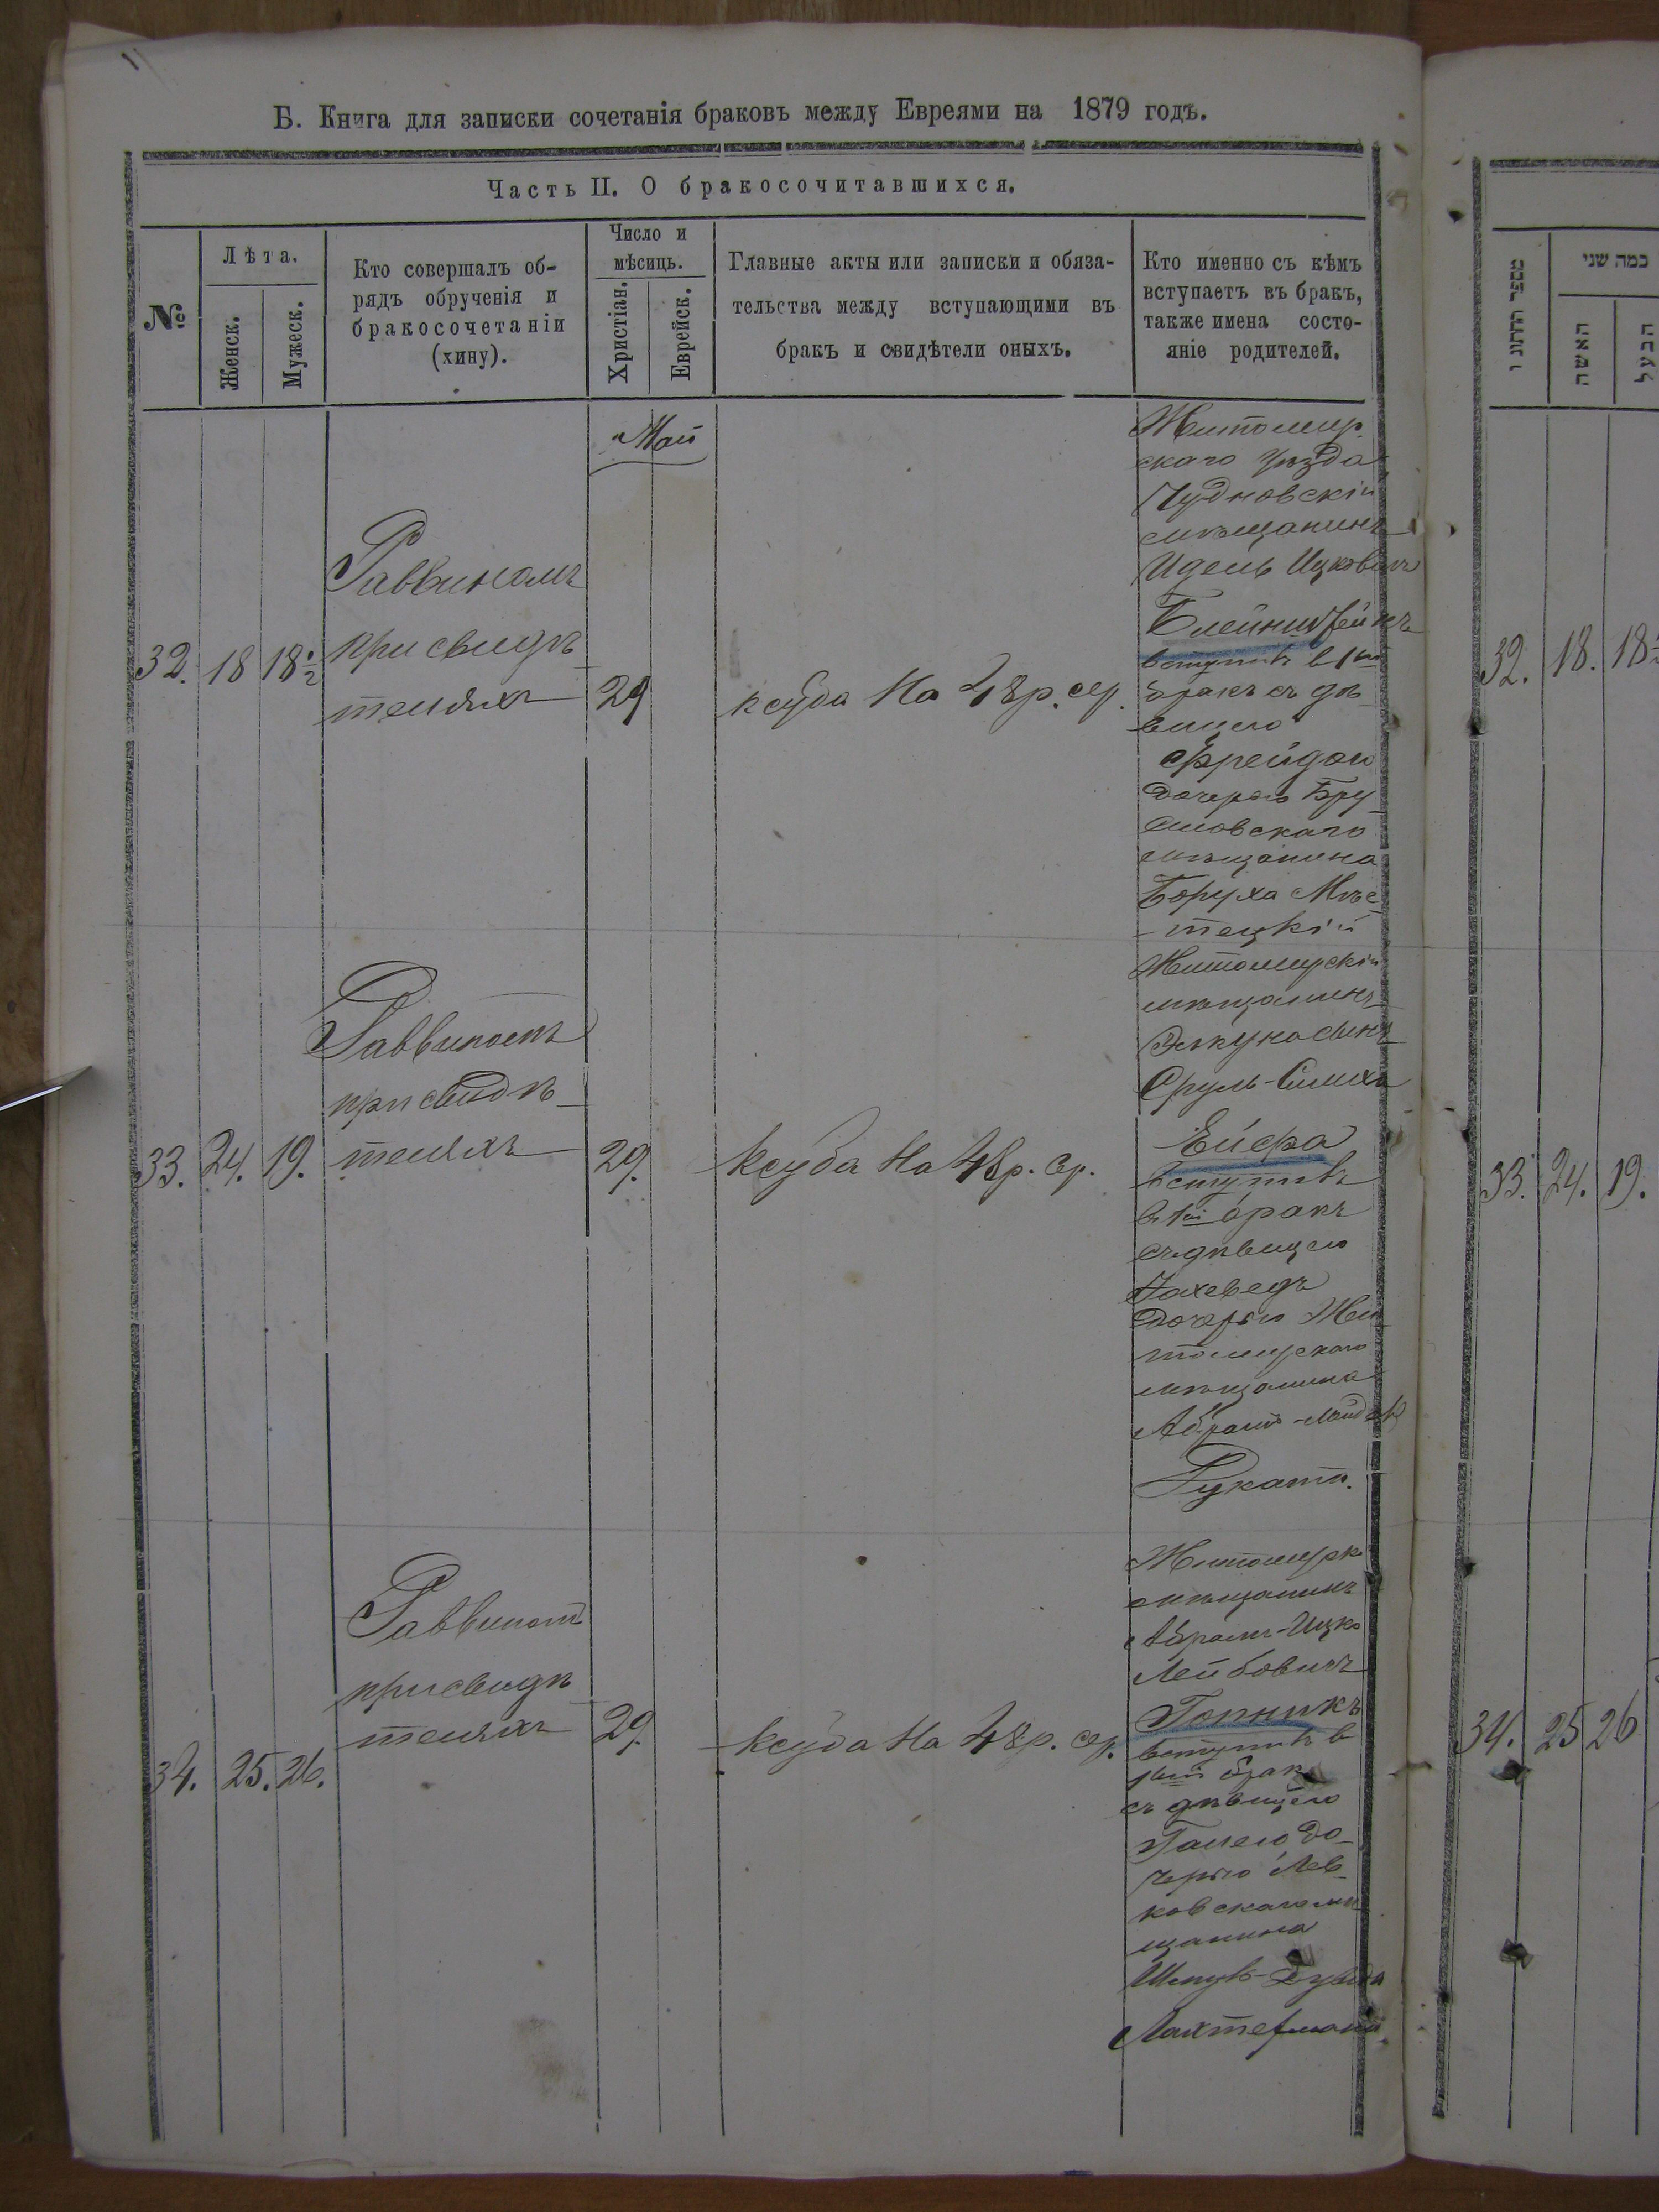 Б. Книга для записки сочетанія браковъ между Евреями на 1879 годъ.
Часть II. О бракосочитавшихся.
№
Лѣта.
Женск.
Мужеск.
Кто совершалъ об-
рядъ обрученія и
бракосочетаніи
(хину).
Число и
мѣсяць.
Христіан.
Еврейск.
Главные акты или записки и обяза-
тельства между вступающими въ
бракъ и свидѣтели оныхъ.
Кто именно съ кѣмъ
вступаетъ въ бракъ,
также имена состо-
яніе родителей.
Май
32. 18 18½
Раввиномъ
при свидѣ
теляхъ
29
ксуба на 48 р. сер.
Житомир
скаго уѣзда
Чудновскій
мѣщанинъ
Идель Ицковичъ
Блейнштейнъ
вступилъ в 1ый
бракъ съ дѣ
вицею
Фрейдою
дочерью Бру
силовскаго
мѣщанина
Боруха Мѣс
тецкій
33. 24. 19.
Раввиномъ
при свидѣ
теляхъ
29.
ксуба на 48 р. сер.
Житомирскій
мѣщанинъ
Сруль-Симха
Ейфа
вступилъ
в 1ый бракъ
съ дѣвицею
Иахеведъ
дочерью Жи
томирскаго
мѣщанина
34. 25. 26.
Раввиномъ
при свидѣ
теляхъ
29.
ксуба на 48 р. сер.
Житомирск
мѣщанинъ
Абрамъ-Ицко
Лейбовичъ
Гопникъ
вступилъ в
1ый брак
съ дѣвицею
до
черью Лев
ковскаго мѣ
щанина
מספר החתוני
כמה שני
האשה
הבעל
32. 18. 18½
33. 24. 19.
34. 25 26